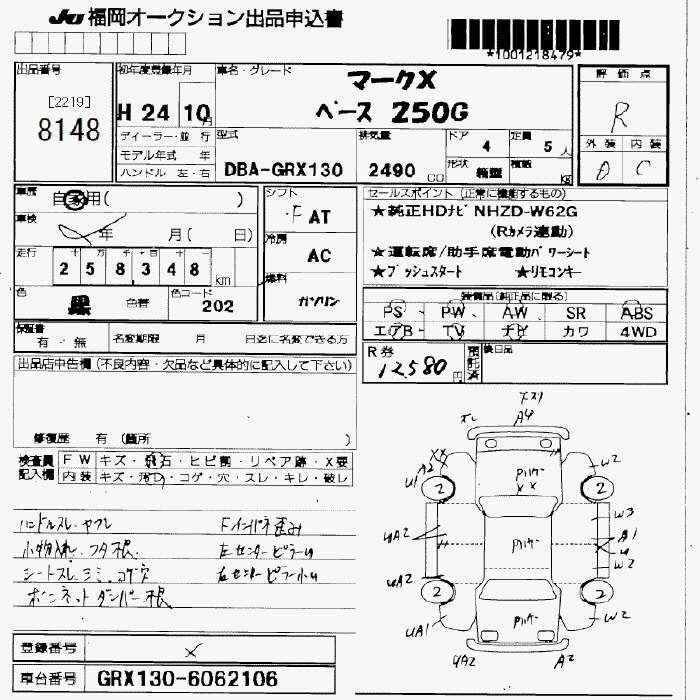 JU 福岡オークション出品申込書
*1001218479*
出品番号 初年度登録年月 車名・グレード 評価点
[2219]
8148
H 24 10 月
マークX
ベース 250G
R
ディーラー・並 行
モデル年式 年
ハンドル 左・右
型式 排気量 ドア 定員
DBA-GRX130 2490 CC 4 5 人
形状 箱型 積載 kg
外装 内装
D C
車歴 自家用( )
車検 年 月( 日)
走行 十 万 千 百 十
2 5 8 3 4 8 km
色 黒 色替 色コード 202
シフト F AT
冷房 AC
燃料 ガソリン
セールスポイント (正常に機動するもの)
★純正HDナビ NHZD-W62G
(Rカメラ連動)
★運転席/助手席電動パワーシート
★プッシュスタート ★リモコンキー
装備品(純正品に限る)
PS PW AW SR ABS
エアB TV ナビ カワ 4WD
保証書 有・無 名変期限 月 日迄に名変できる方
R券 12,580 円 預託済 後日品
出品店申告欄 (不良内容・欠品など具体的に記入して下さい)
修復歴 有 (箇所 )
検査員 FW キズ・飛石・ヒビ割・リペア跡・X要
記入欄 内装 キズ・汚レ・コゲ・穴・スレ・キレ・破レ
ハンドルスレ・ヤブレ Fインパネ歪み
小物入れ、フタ板、
シートスレ、シミ、コゲ穴
ボンネットダンパー根
登録番号
車台番号 GRX130-6062106
A4
XX
A2
U1
W2
2 2
X X
UA2
W3
A1
U
W2
UA2
2 2
UA1
W2
UA2
A2